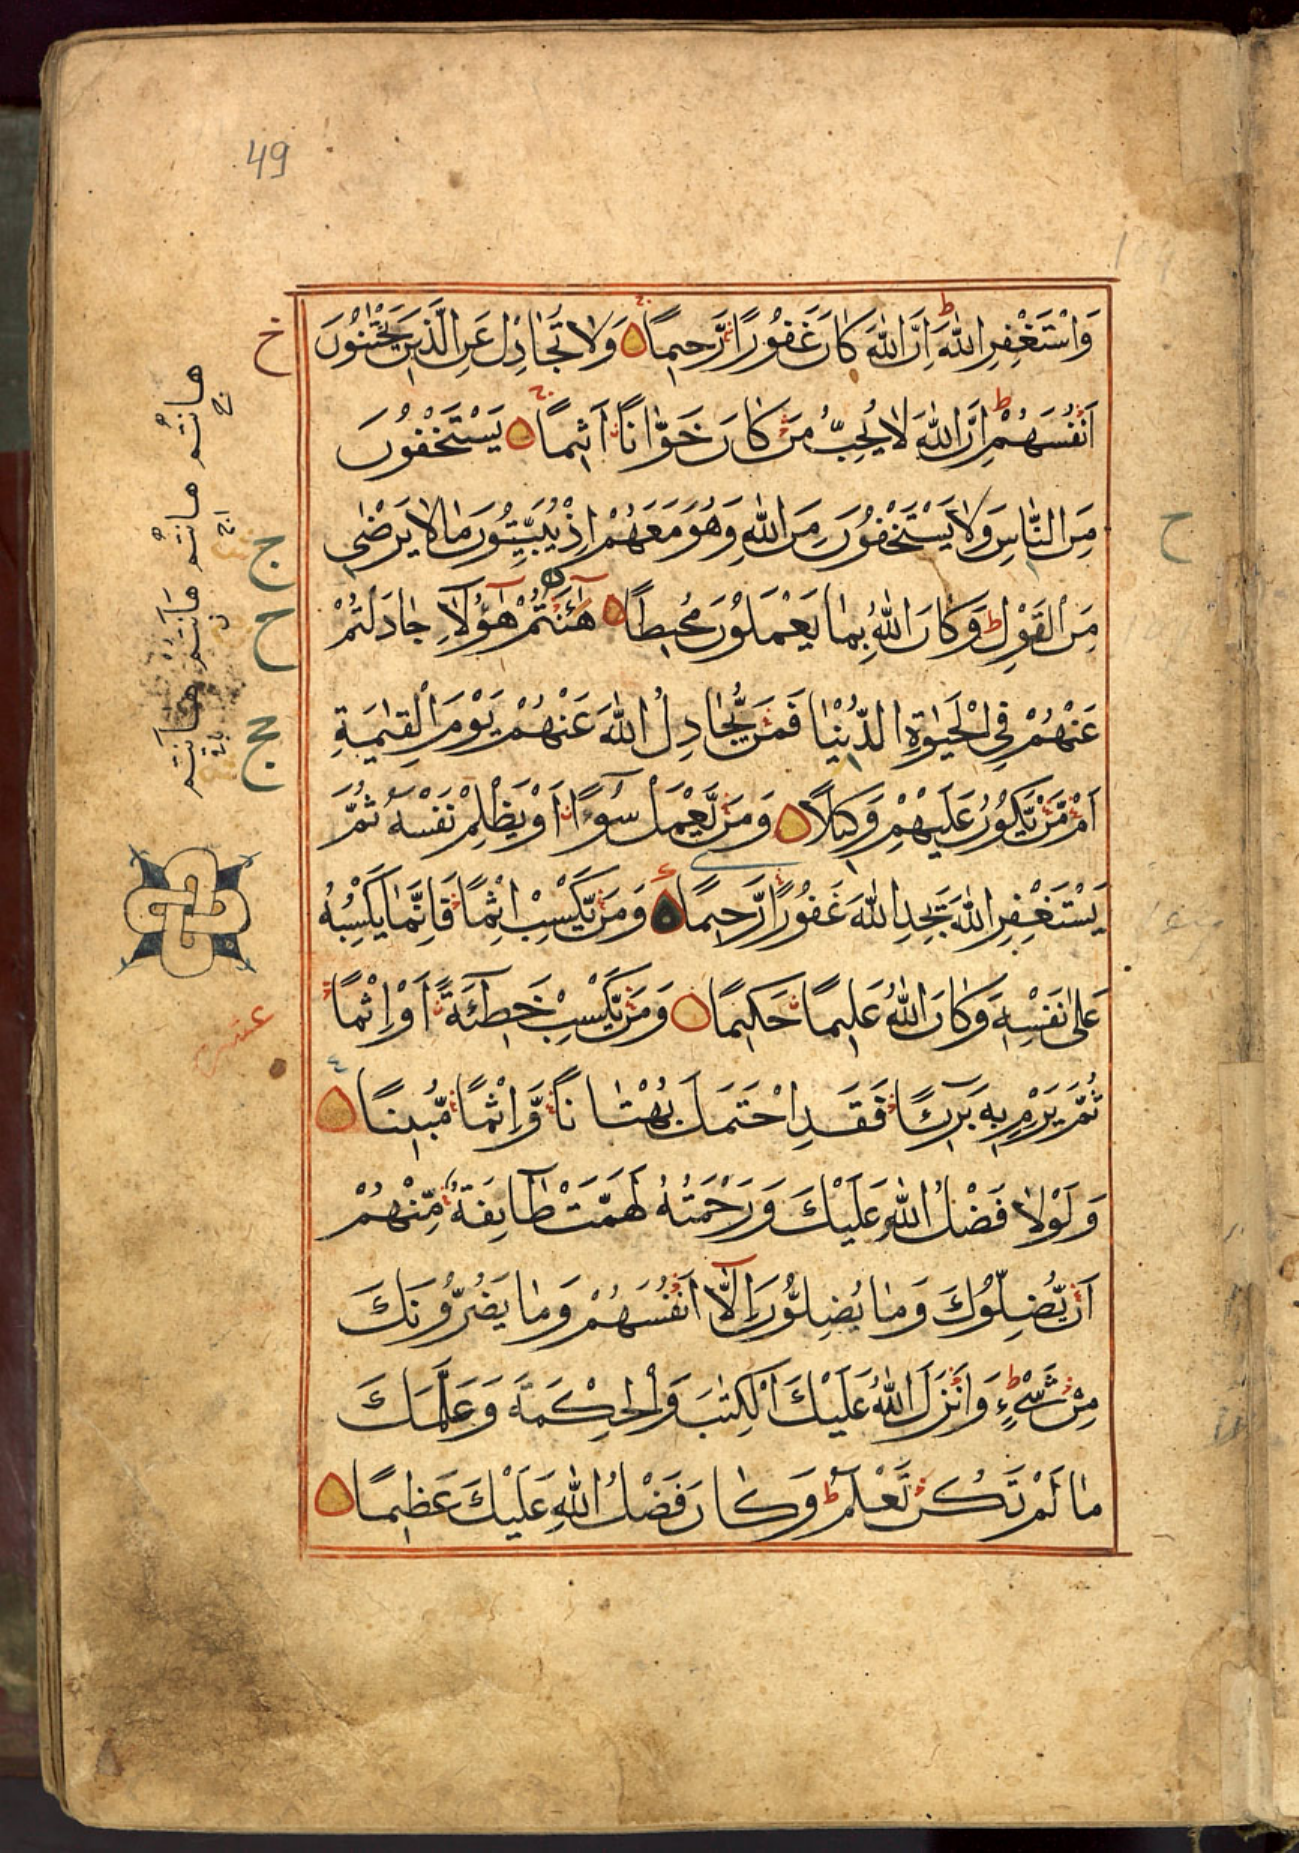 49
وَاسْتَغْفِرِ اللهَ اِنَّ اللهَ كَانَ غَفُوْرًا رَّحِيمًا وَلَا تُجَادِلْ عَنِ الَّذِينَ يَخْتَانُوْنَ
اَنْفُسَهُمْ اِنَّ اللهَ لَا يُحِبُّ مَنْ كَانَ خَوَّانًا اَثِيمًا يَسْتَخْفُوْنَ
مِنَ النَّاسِ وَلَا يَسْتَخْفُوْنَ مِنَ اللهِ وَهُوَ مَعَهُمْ اِذْ يُبَيِّتُوْنَ مَا لَا يَرْضٰى
مِنَ الْقَوْلِ ط وَكَانَ اللهُ بِمَا يَعْمَلُوْنَ مُحِيطًا هٰٓاَنْتُمْ هٰٓؤُلَاءِ جَادَلْتُمْ
عَنْهُمْ فِي الْحَيٰوةِ الدُّنْيَا فَمَنْ يُّجَادِلُ اللهَ عَنْهُمْ يَوْمَ الْقِيٰمَةِ
اَمْ مَّنْ يَّكُوْنُ عَلَيْهِمْ وَكِيلًا وَمَنْ يَّعْمَلْ سُوْٓءًا اَوْ يَظْلِمْ نَفْسَهُ ثُمَّ
يَسْتَغْفِرِ اللهَ يَجِدِ اللهَ غَفُوْرًا رَّحِيمًا وَمَنْ يَّكْسِبْ اِثْمًا فَاِنَّمَا يَكْسِبُهُ
عَلٰى نَفْسِهٖ وَكَانَ اللهُ عَلِيمًا حَكِيمًا وَمَنْ يَّكْسِبْ خَطِٓيئَةً اَوْ اِثْمًا
ثُمَّ يَرْمِ بِهٖ بَرِٓيئًا فَقَدِ احْتَمَلَ بُهْتَانًا وَّاِثْمًا مُّبِينًا
وَلَوْلَا فَضْلُ اللهِ عَلَيْكَ وَرَحْمَتُهُ لَهَمَّتْ طَآئِفَةٌ مِّنْهُمْ
اَنْ يُّضِلُّوْكَ وَمَا يُضِلُّوْنَ اِلَّٓا اَنْفُسَهُمْ وَمَا يَضُرُّوْنَكَ
مِنْ شَيْءٍ ط وَاَنْزَلَ اللهُ عَلَيْكَ الْكِتٰبَ وَالْحِكْمَةَ وَعَلَّمَكَ
مَا لَمْ تَكُنْ تَعْلَمْ ط وَكَانَ فَضْلُ اللهِ عَلَيْكَ عَظِيمًا
هانتم هانتم هاَنتم هاَنتم
خ
ج
ح
ح
عشر